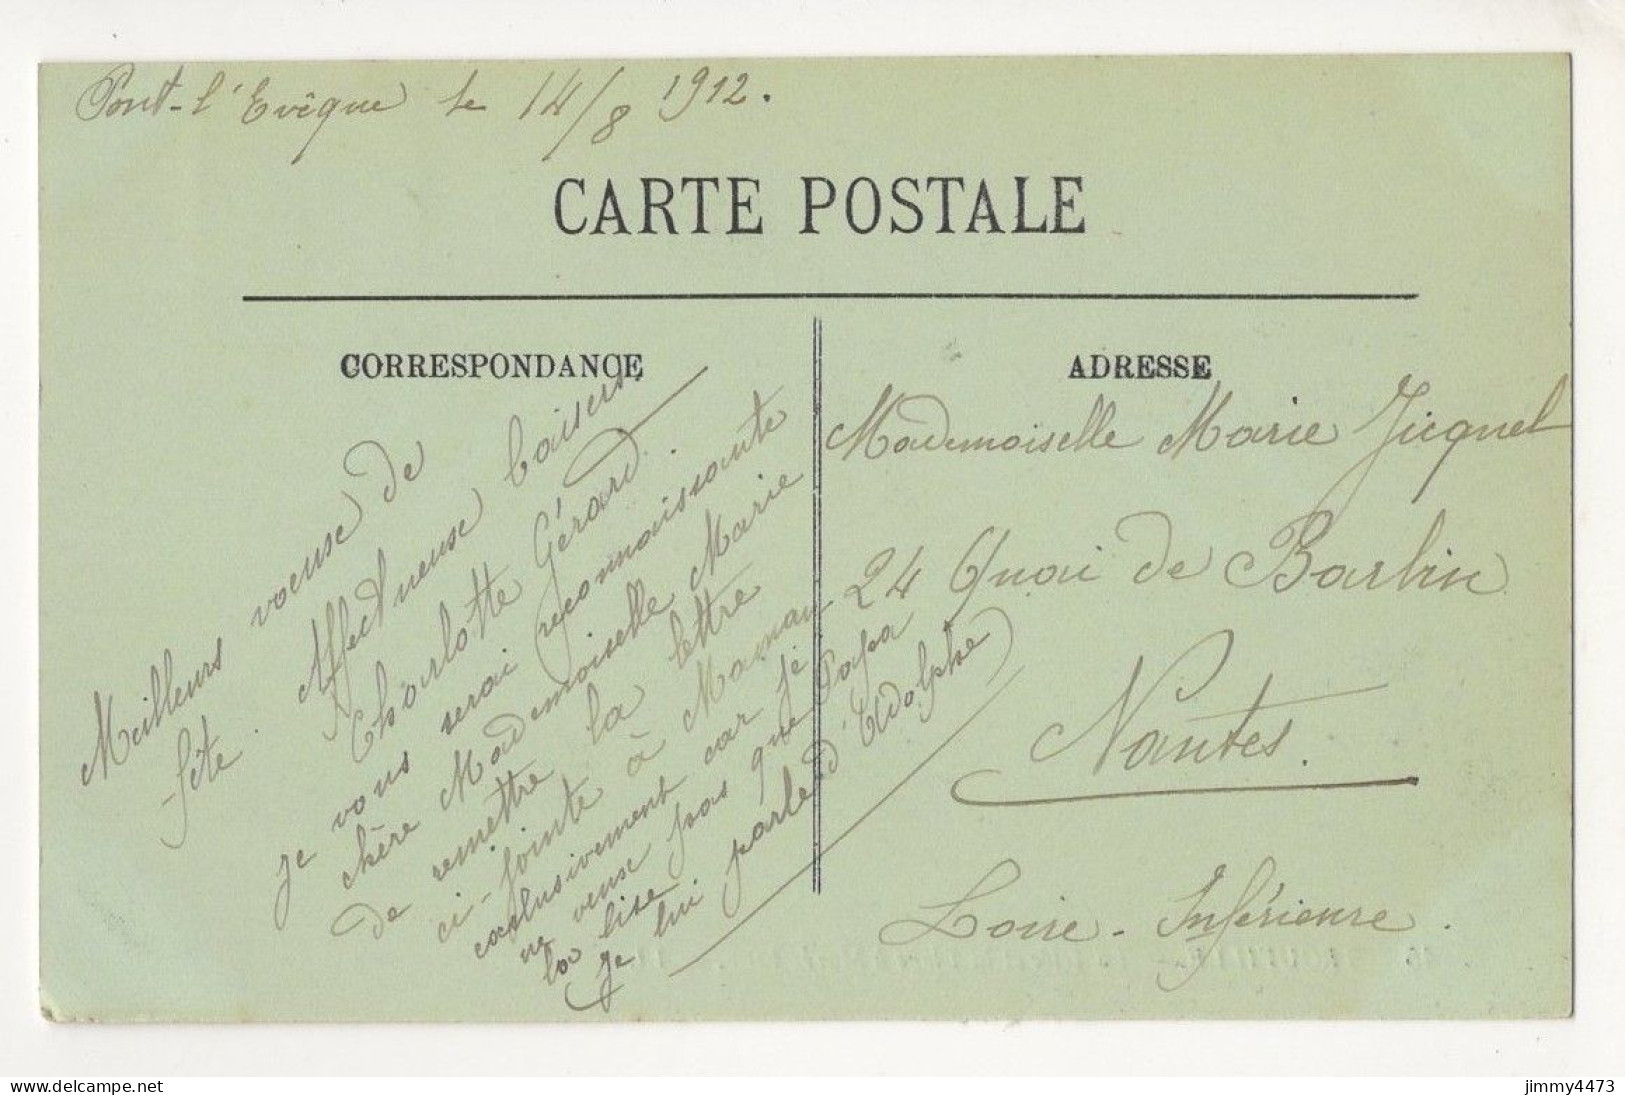 Pont-l'Evêque le 14/8 1912.
CARTE POSTALE
CORRESPONDANCE
Meilleurs voeuse de
fête. Affectueuse baisers
Charlotte Gérard.
je vous serai reconnaissante
chère Mademoiselle Marie
de remettre la lettre
ci-jointe à Maman
exclusivement car je
ne veuse pas que Papa
la lise
je lui parle d'Adolphe)
ADRESSE
Mademoiselle Marie Jicquel
24 Quai de Barbin
Nantes.
Loire-Inférieure.
www.delcampe.net
jimmy4473